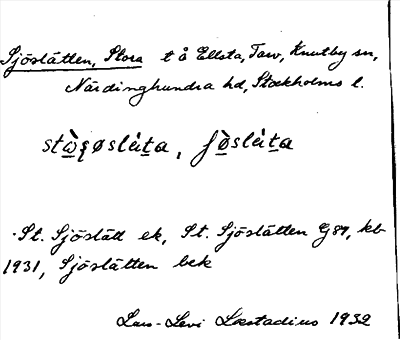 Sjöslåtten, Stora t å Ellsta, Tarv, Knutby sn,
Närdinghundra hd, Stockholms l.
St. Sjöslått ek, St. Sjöslåtten G89, kb
1931, Sjöslåtten bek
Lars-Levi Læstadius 1932